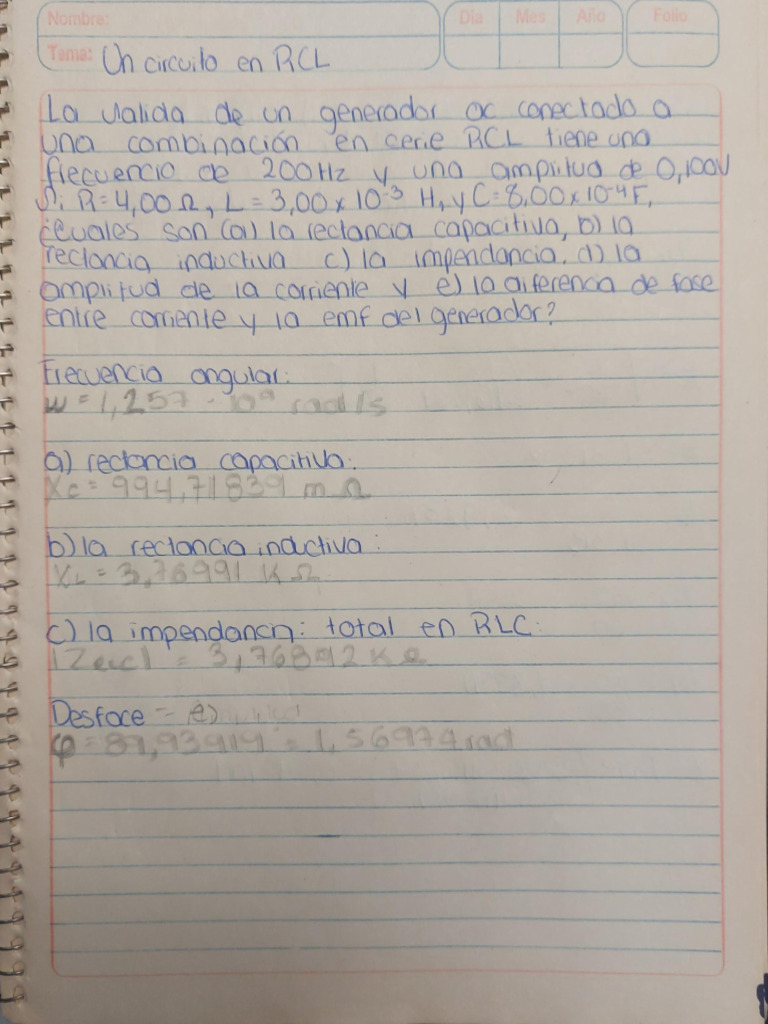 Nombre:
Día Mes Año Folio
Tema: Un circuito en RCL
La valida de un generador ac conectado a
una combinación en serie RCL tiene una
frecuencia de 200Hz y una amplitud de 0,100V
Si R=4,00Ω, L=3,00x10⁻³ H, y C=8,00x10⁻⁴F,
¿cuales son (a) la rectancia capacitiva, b) la
rectancia inductiva c) la impendancia. d) la
amplitud de la corriente y e) la diferencia de fase
entre corriente y la emf del generador?
Frecuencia angular:
w = 1,257 · 10⁹ rad/s
a) rectancia capacitiva:
Xc = 994,71839 m Ω
b) la rectancia inductiva:
XL = 3,76991 K Ω
c) la impendancn: total en RLC:
= 3,76892 K Ω
Desface = e)
φ = 89,93919° = 1,56974 rad